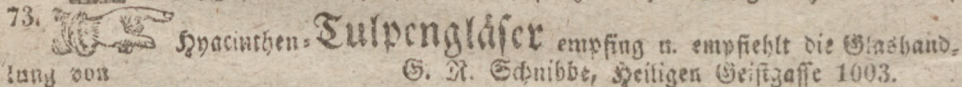 73. Hyacinthen-Tulpengläser empfing u. empfiehlt die Glashand-
lung von G. R. Schnibbe, Heiligen Geistgasse 1003.